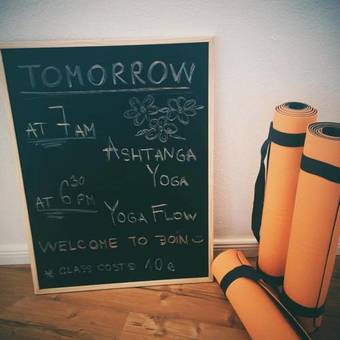 TOMORROW
AT 7 AM
ASHTANGA
YOGA
AT 6 30 PM
YOGA FLOW
WELCOME TO JOIN :)
* CLASS COSTS 10 €